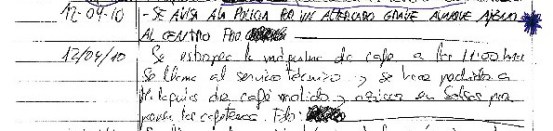 12-04-10 - SE AVISA A LA POLICIA POR UN ALTERCADO GRAVE AUNQUE AJENO
AL CENTRO FDO
12/04/10 Se estropea la máquina de café a las 11:00 hrs
Se llama al servicio técnico y se hace pedido a
de café molido y azúcar en sobres para
poner las cafeteras. Fdo: